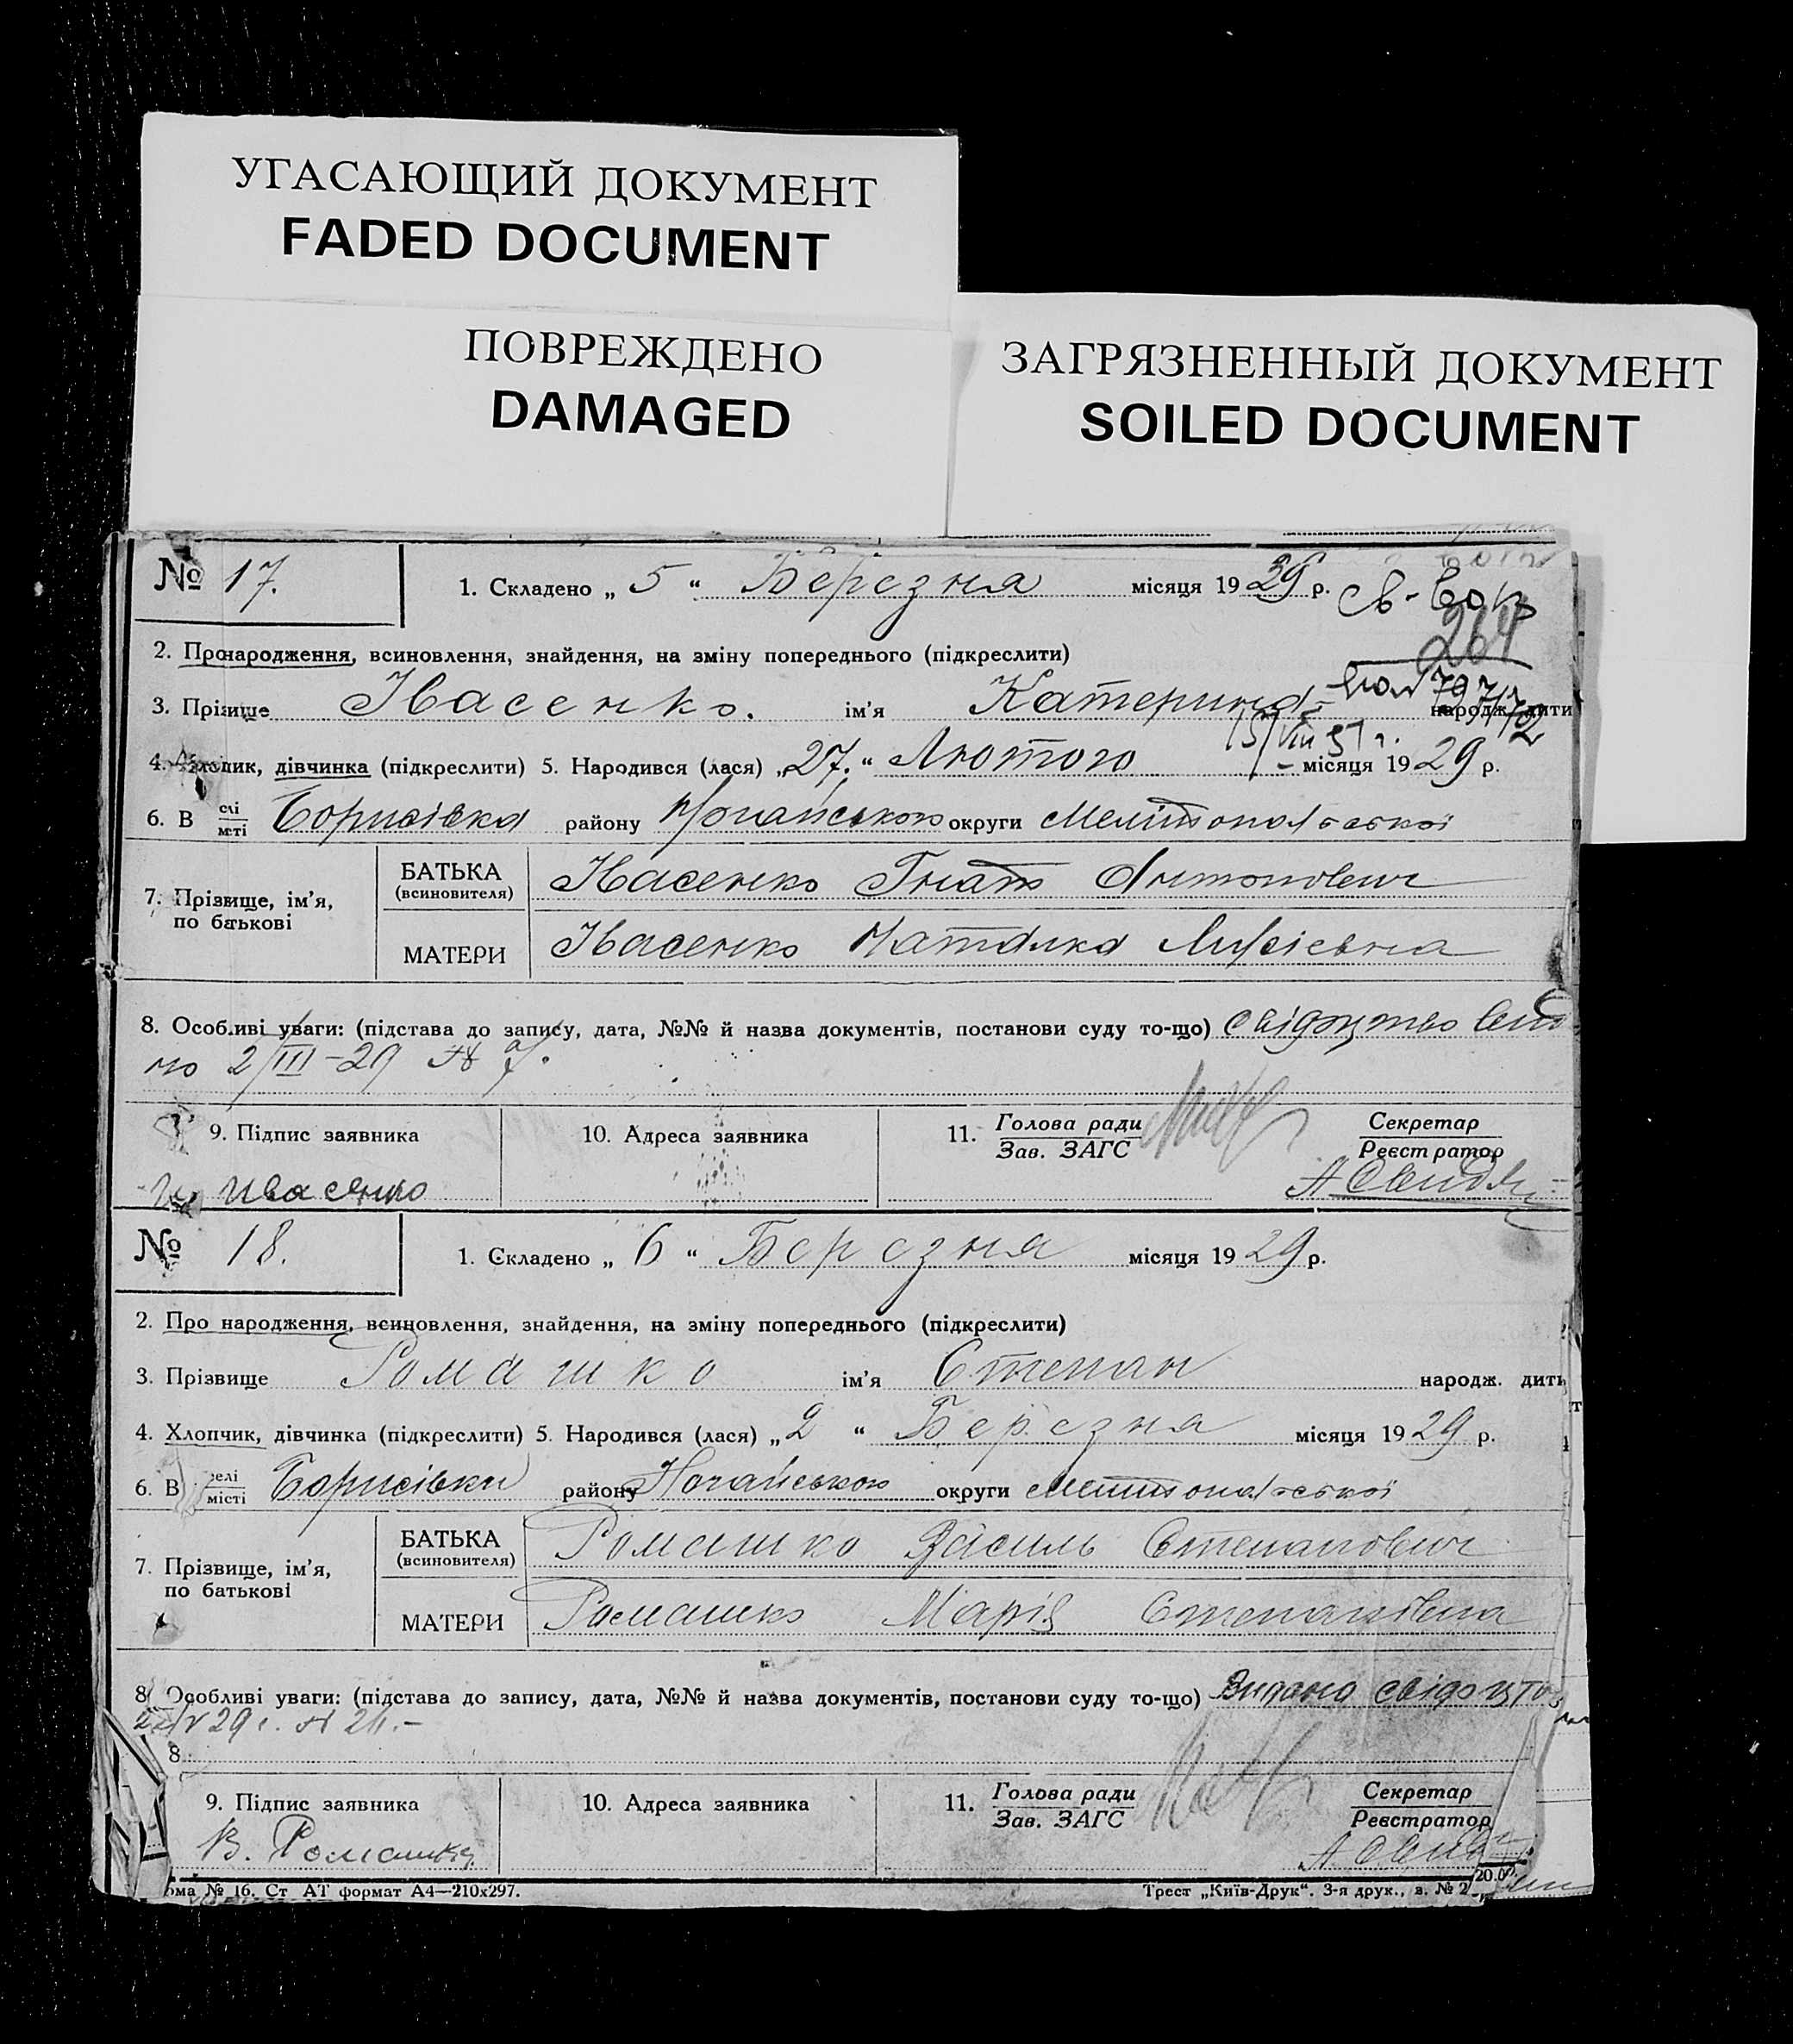 УГАСАЮЩИЙ ДОКУМЕНТ
FADED DOCUMENT
ПОВРЕЖДЕНО
DAMAGED
ЗАГРЯЗНЕННЫЙ ДОКУМЕНТ
SOILED DOCUMENT
№ 17. 1. Складено „ 5 “ Березня місяця 1929 р.
264
2. Про народження, всиновлення, знайдення, на зміну попереднього (підкреслити)
3. Прізвище Івасенко. ім'я Катерина народж. дити
15/VIII 51 г.
4. Хлопчик, дівчинка (підкреслити) 5. Народився (лася) „27.“ Лютого місяця 1929 р.
6. В селі місті Борисівка району Ногайського округи Мелітопольської
7. Прізвище, ім'я, по батькові
БАТЬКА (всиновителя) Івасенко Гнат Антонович
МАТЕРИ Івасенко Наталка
8. Особливі уваги: (підстава до запису, дата, №№ й назва документів, постанови суду то-що) свідоцтво
но 2/III-29 № 7.
9. Підпис заявника 10. Адреса заявника 11. Голова ради Зав. ЗАГС Секретар Реєстратор
Ивасенко
№ 18. 1. Складено „ 6 “ Березня місяця 1929 р.
2. Про народження, всиновлення, знайдення, на зміну попереднього (підкреслити)
3. Прізвище Ромашко ім'я Степан народж. дить
4. Хлопчик, дівчинка (підкреслити) 5. Народився (лася) „2 “ Березня місяця 1929 р.
6. В селі місті Борисівки району Ногайського округи Мелітопольської
7. Прізвище, ім'я, по батькові
БАТЬКА (всиновителя) Ромашко Василь Степанович
МАТЕРИ Ромашко Марія Степанівна
8. Особливі уваги: (підстава до запису, дата, №№ й назва документів, постанови суду то-що) Видано свідоцтво
29 г. №
8.
9. Підпис заявника 10. Адреса заявника 11. Голова ради Зав. ЗАГС Секретар Реєстратор
В. Ромашко
рма № 16. Ст АТ формат А4—210х297. Трест „Київ-Друк“. 3-я друк., з. № 2